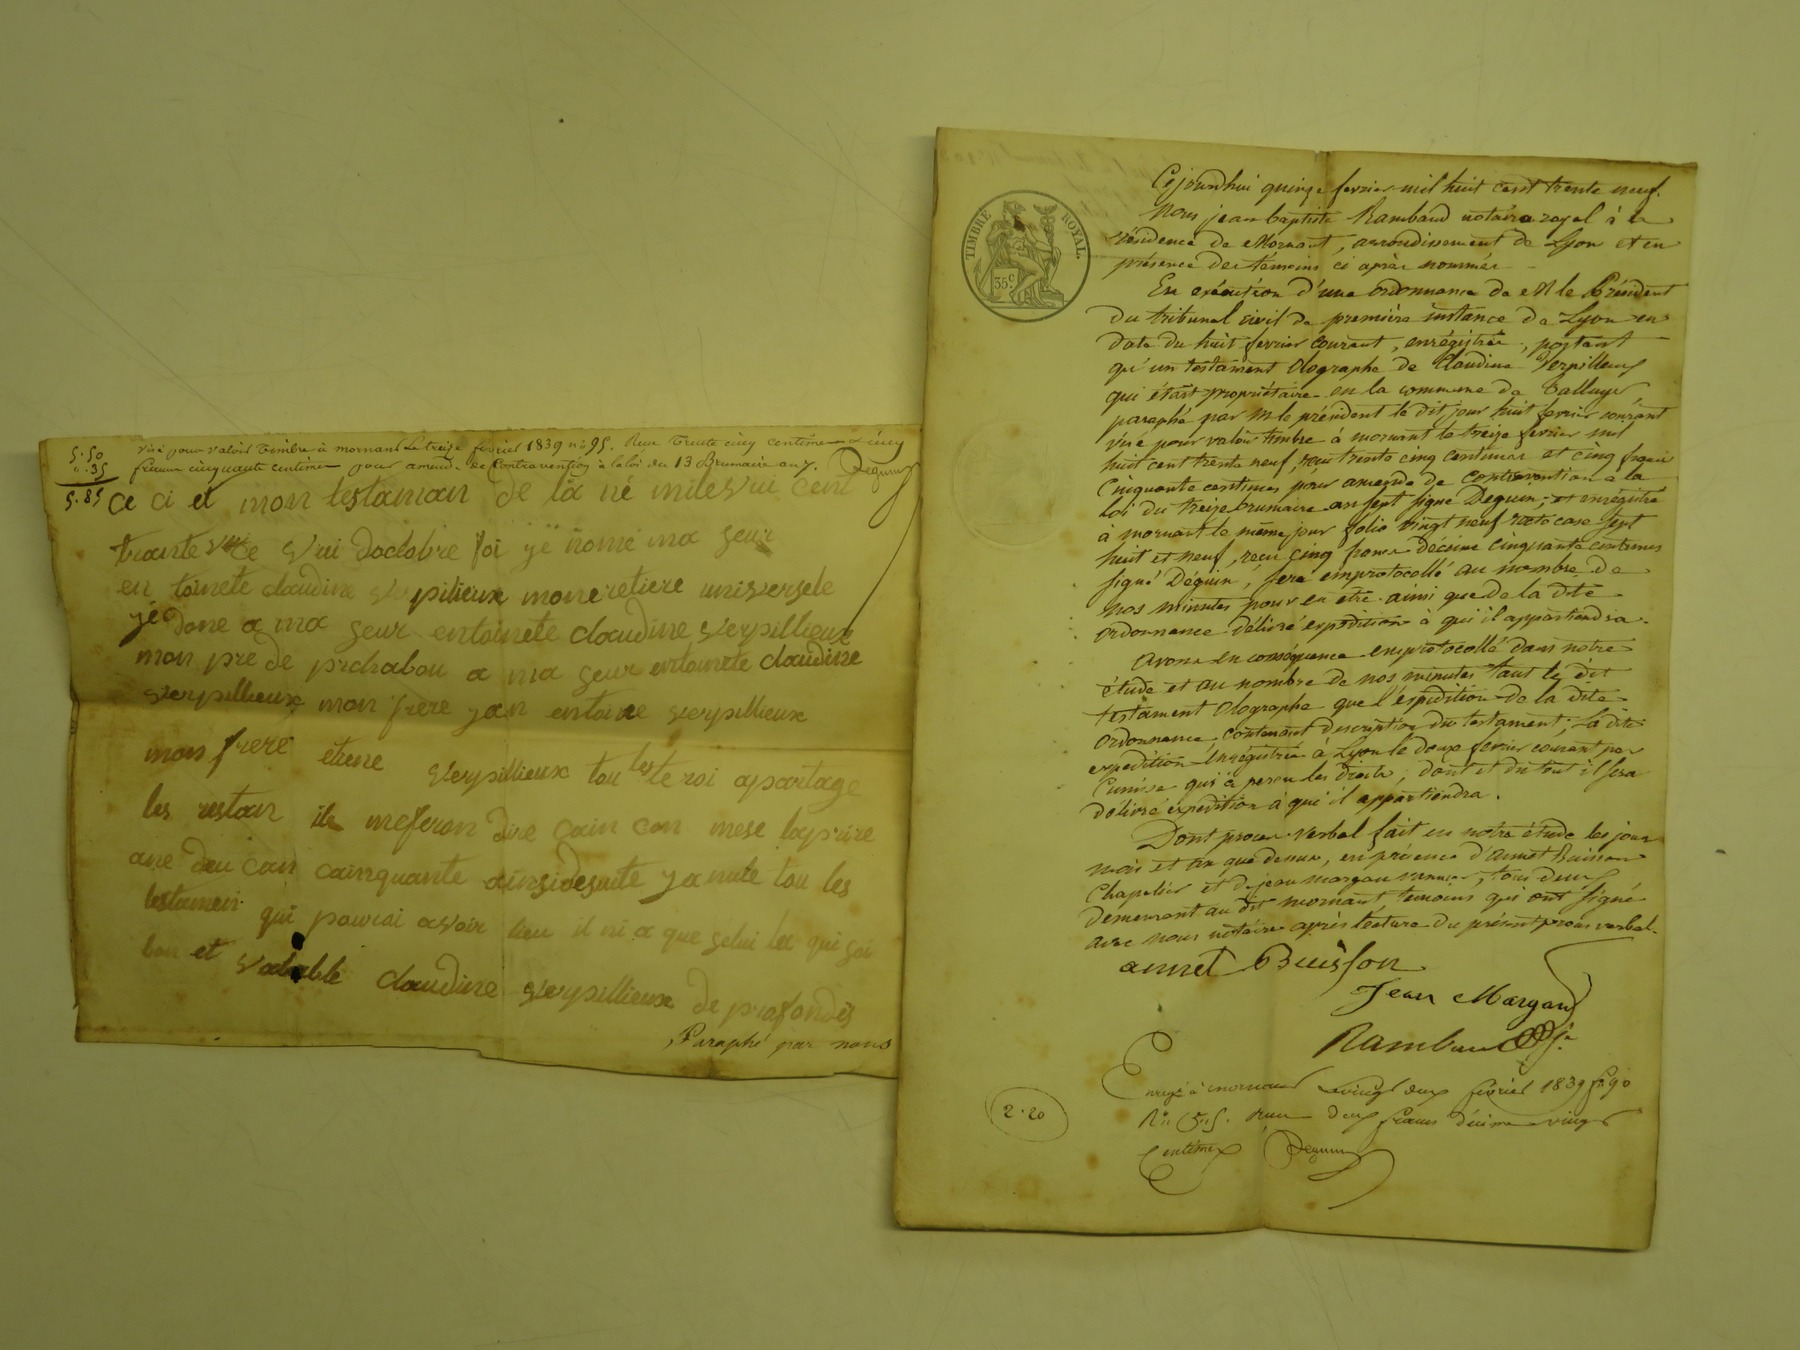 5.50
".35
5.85
Visé pour valoir timbre à mornant Le treize février 1839 n° 95. Reçu trente cinq centimes & cinq
francs cinquante centimes pour amende de Contravention à la loi du 13 Brumaire an 7. Deguin
ce ci et mon testaman de la né mile vui cent
trante vui doctobre foi ye nomé ma seur
en toinete claudine verpilieux moneretiere universele
yé done a ma seur entoinete claudine verpillieux
mon pre de prchabou a ma seur entoinete claudine
verpillieux mon frere yan entoine verpillieux
mon frere etiene verpillieux tou les te roi apartage
les restan ils meferon dire cain can mese laprire
ane deu can cainquante ainsidesuite yanule tou les
testamen qui pourai avoir lieu il ni a que selui la qui soi
bon et valable claudine verpillieux de profondis
Paraphé par nous
TIMBRE ROYAL.
35 c.
Cejourdhui quinze fevrier mil huit cent trente neuf.
Nous jean baptiste Rambaud notaire royal à la
résidence de Mornant, arrondissement de Lyon et en
présence des témoins ci après nommés
En exécution d'une ordonnance de M le Président
du tribunal civil de première instance de Lyon en
date du huit fevrier courant, enrégistrée, portant
qu'un testament Olographe de Claudine Verpilleux
qui était propriétaire en la commune de Talluyer
paraphé par M le président le dit jour huit fevrier courant
visé pour valoir timbre à mornant le treize fevrier mil
huit cent trente neuf, reçu trente cinq centimes et cinq francs
Cinquante centimes pour amende de contravention à la
loi du treize brumaire an sept signé Deguin; et enrégistré
à mornant le même jour folio vingt neuf recto case sept
huit et neuf, reçu cinq francs décime cinquante centimes
signé Deguin, sera emprotocollé au nombre de
nos minutes pour en etre ainsi que de la dite
ordonnance délivré expédition à qui il appartiendra.
Avons en conséquence emprotocollé dans notre
étude et au nombre de nos minutes tant le dit
testament Olographe que l'expédition de la dite
Ordonnance contenant description du testament; La dite
expédition enrégistrée à Lyon le douze fevrier courant par
qui a perçu les droits; dont et du tout il sera
délivré expédition à qui il appartiendra.
Dont procès-verbal fait en notre étude les jour
mois et an que dessus, en présence d'annet Buisson
Chapelier et de jean margaud, tous deux
demeurant au dit mornant témoins qui ont signé
avec nous notaire après lecture du présent procès verbal.
annet Buisson
Jean Margaud
Rambaud
Enrgé à mornant le vingt deux février 1839 f° 90
R° C 5. reçu deux francs décime vingt
Centimes Deguin
2.20